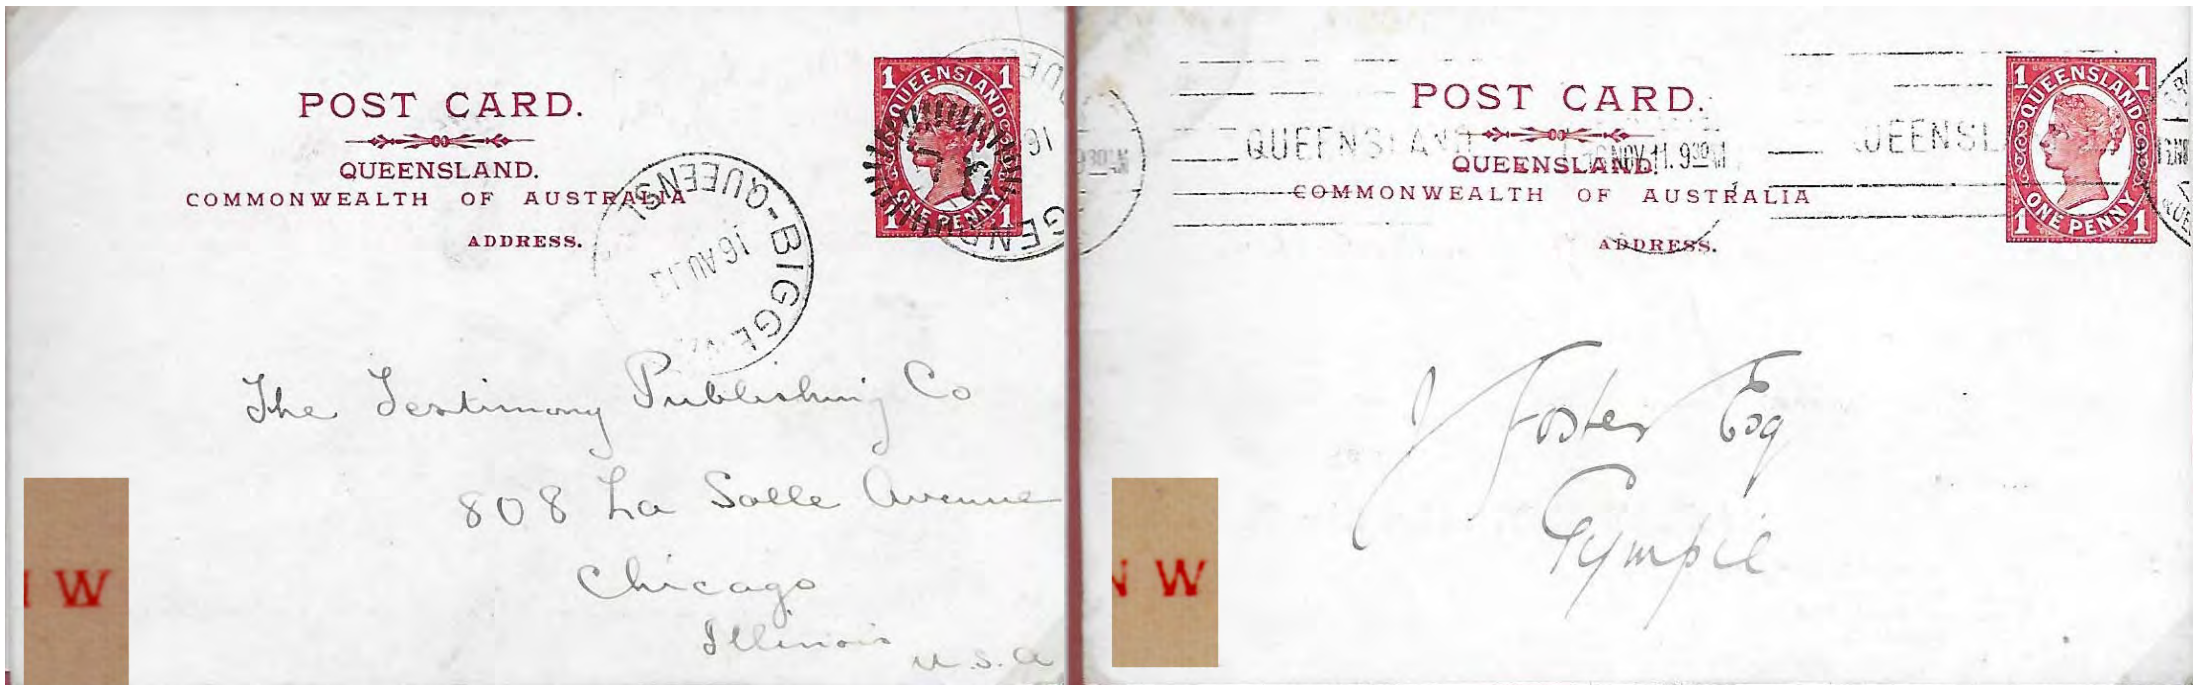 POST CARD.
QUEENSLAND.
COMMONWEALTH OF AUSTRALIA
ADDRESS.
1 QUEENSLAND 1
1 ONE PENNY 1
BIGGE
QUEENSL
16 AU 12
The Testimony Publishing Co
808 La Salle Avenue
Chicago
Illinois
U.S.A
W
POST CARD.
QUEENSLAND
QUEENSLAND.
NOV 11. 9 30 AM
COMMONWEALTH OF AUSTRALIA
ADDRESS.
QUEENSL
1 QUEENSLAND 1
1 ONE PENNY 1
J Foster Esq
Gympie
N W